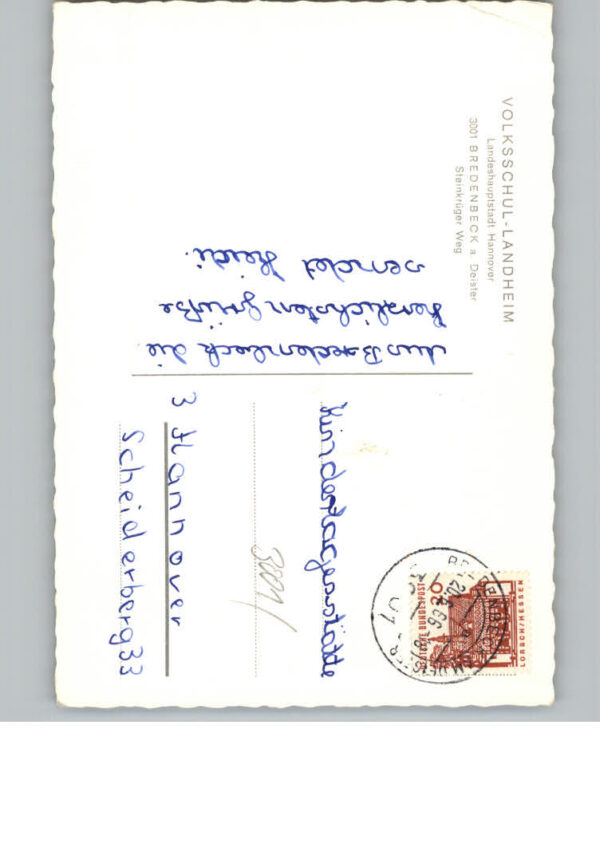 VOLKSSCHUL-LANDHEIM
Landeshauptstadt Hannover
3001 BREDENBECK a. Deister
Steinkrüger Weg
Aus Bredenbeck die
herzlichsten grüße
sendet Heidi.
Kindertagesstätte
3001/
3 Hannover
Scheiderberg 33
DEUTSCHE BUNDESPOST
LORSCH/HESSEN